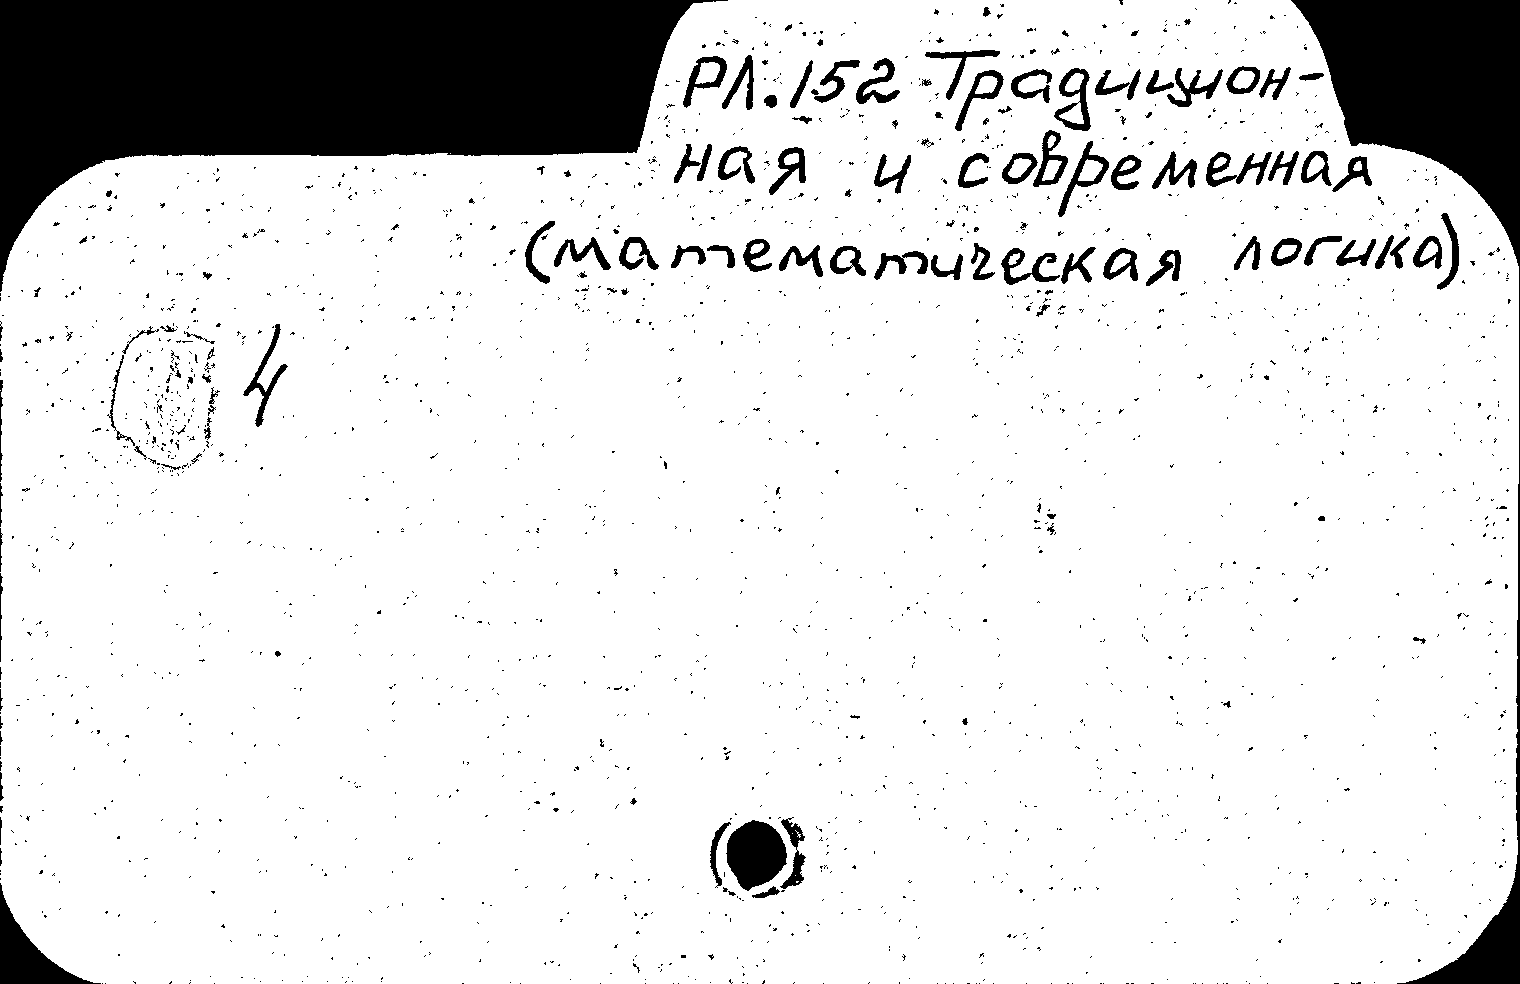 РЛ.152 Традицион-
ная и современная
(математическая логика)
4